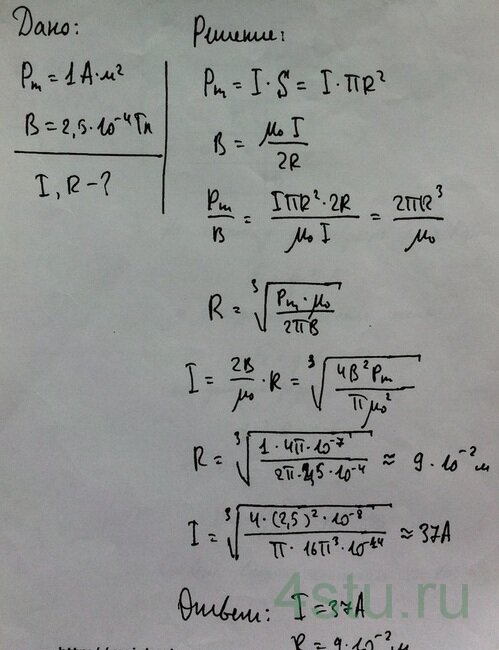 Дано:
Pm = 1 А·м²
B = 2,5·10⁻⁴ Тл
I, R - ?
Решение:
Pm = I·S = I·πR²
B = μ₀I / 2R
Pm / B = IπR²·2R / μ₀I = 2πR³ / μ₀
R = ∛(Pm·μ₀ / 2πB)
I = 2B / μ₀ · R = ∛(4B²Pm / πμ₀²)
R = ∛(1·4π·10⁻⁷ / 2π·2,5·10⁻⁴) ≈ 9·10⁻² м
I = ∛(4·(2,5)²·10⁻⁸ / π·16π³·10⁻¹⁴) ≈ 37А
Ответ: I = 37А
R = 9·10⁻² м
4stu.ru